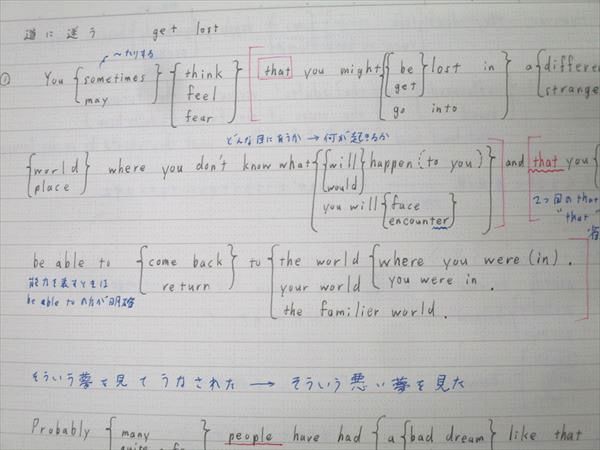 道に迷う get lost
～たりする
① You { sometimes may } { think feel fear } [ that you might { be get } lost in a { differe
go into strange
どんな目に合うか → 何が起きるか
{ world place } where you don't know what { { will would } happen (to you) } ] and [ that you {
you will { face encounter }
2つ目の that
"that"
be able to { come back return } to { the world { where you were (in).
you were in.
your world
the familier world.
能力を表すときは
be able to の方が明確
そういう夢を見てうなされた → そういう悪い夢を見た
Probably { many } people have had { a { bad dream } like that